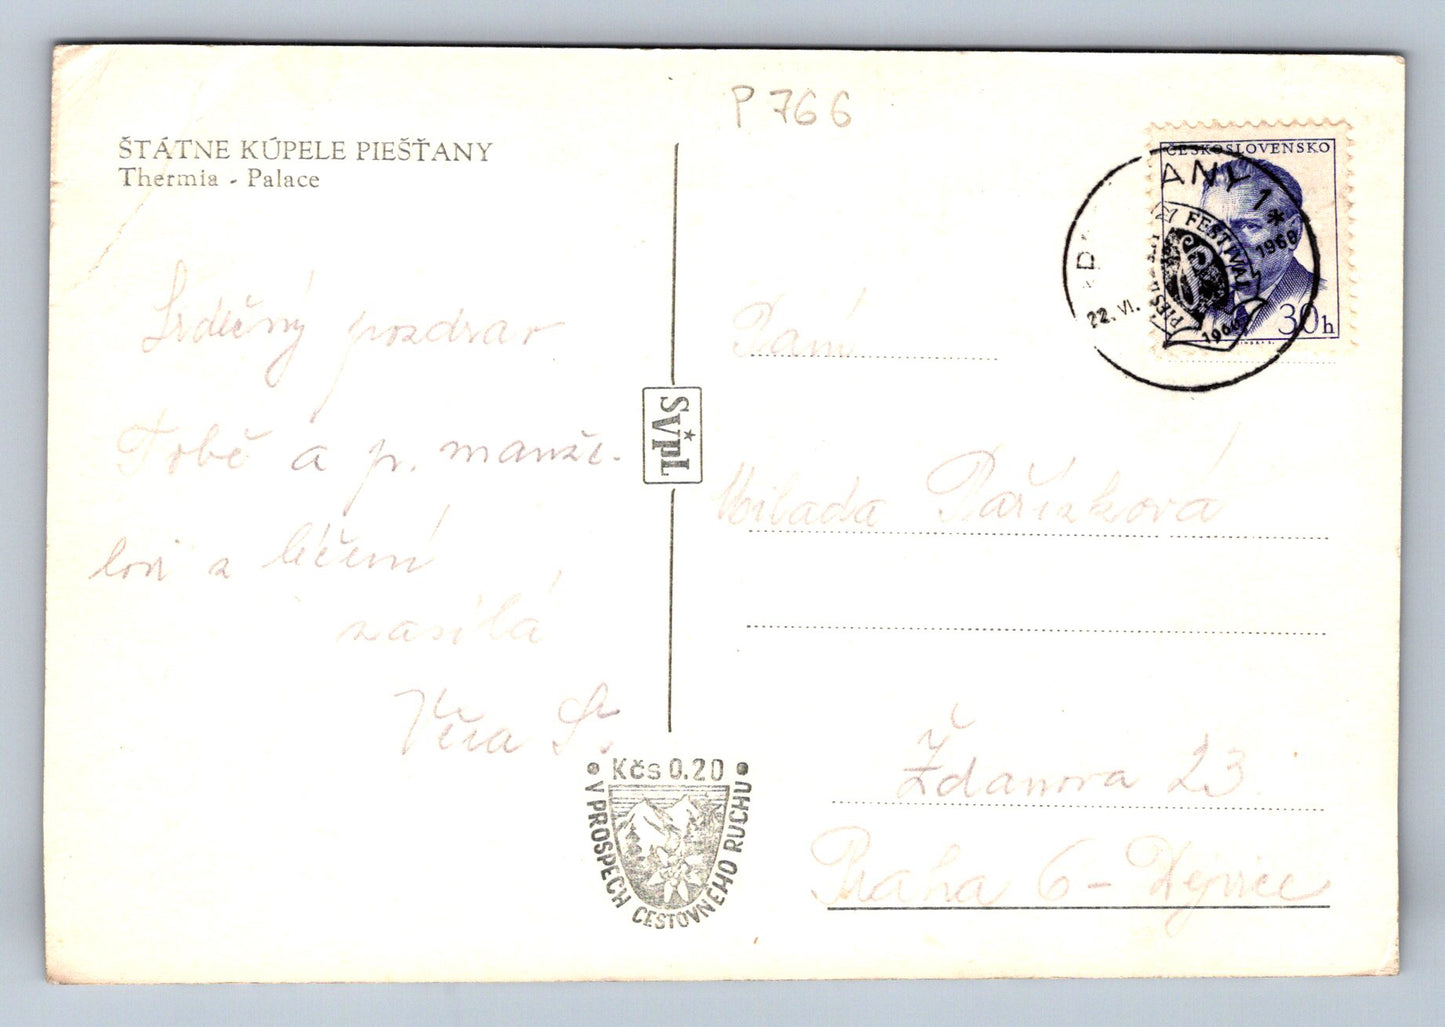 P 766
ŠTÁTNE KÚPELE PIEŠŤANY
Thermia - Palace
Srdečný pozdrav
Tobě a p. manže-
lovi z léčení
zasílá
Věra Š.
SVPL
Kčs 0.20
V PROSPECH CESTOVNÉHO RUCHU
ČESKOSLOVENSKO
30 h
ANY 1
22. VI. 1968
FESTIVAL
Paní
Milada Pařízková
Ždanova 23.
Praha 6 - Dejvice